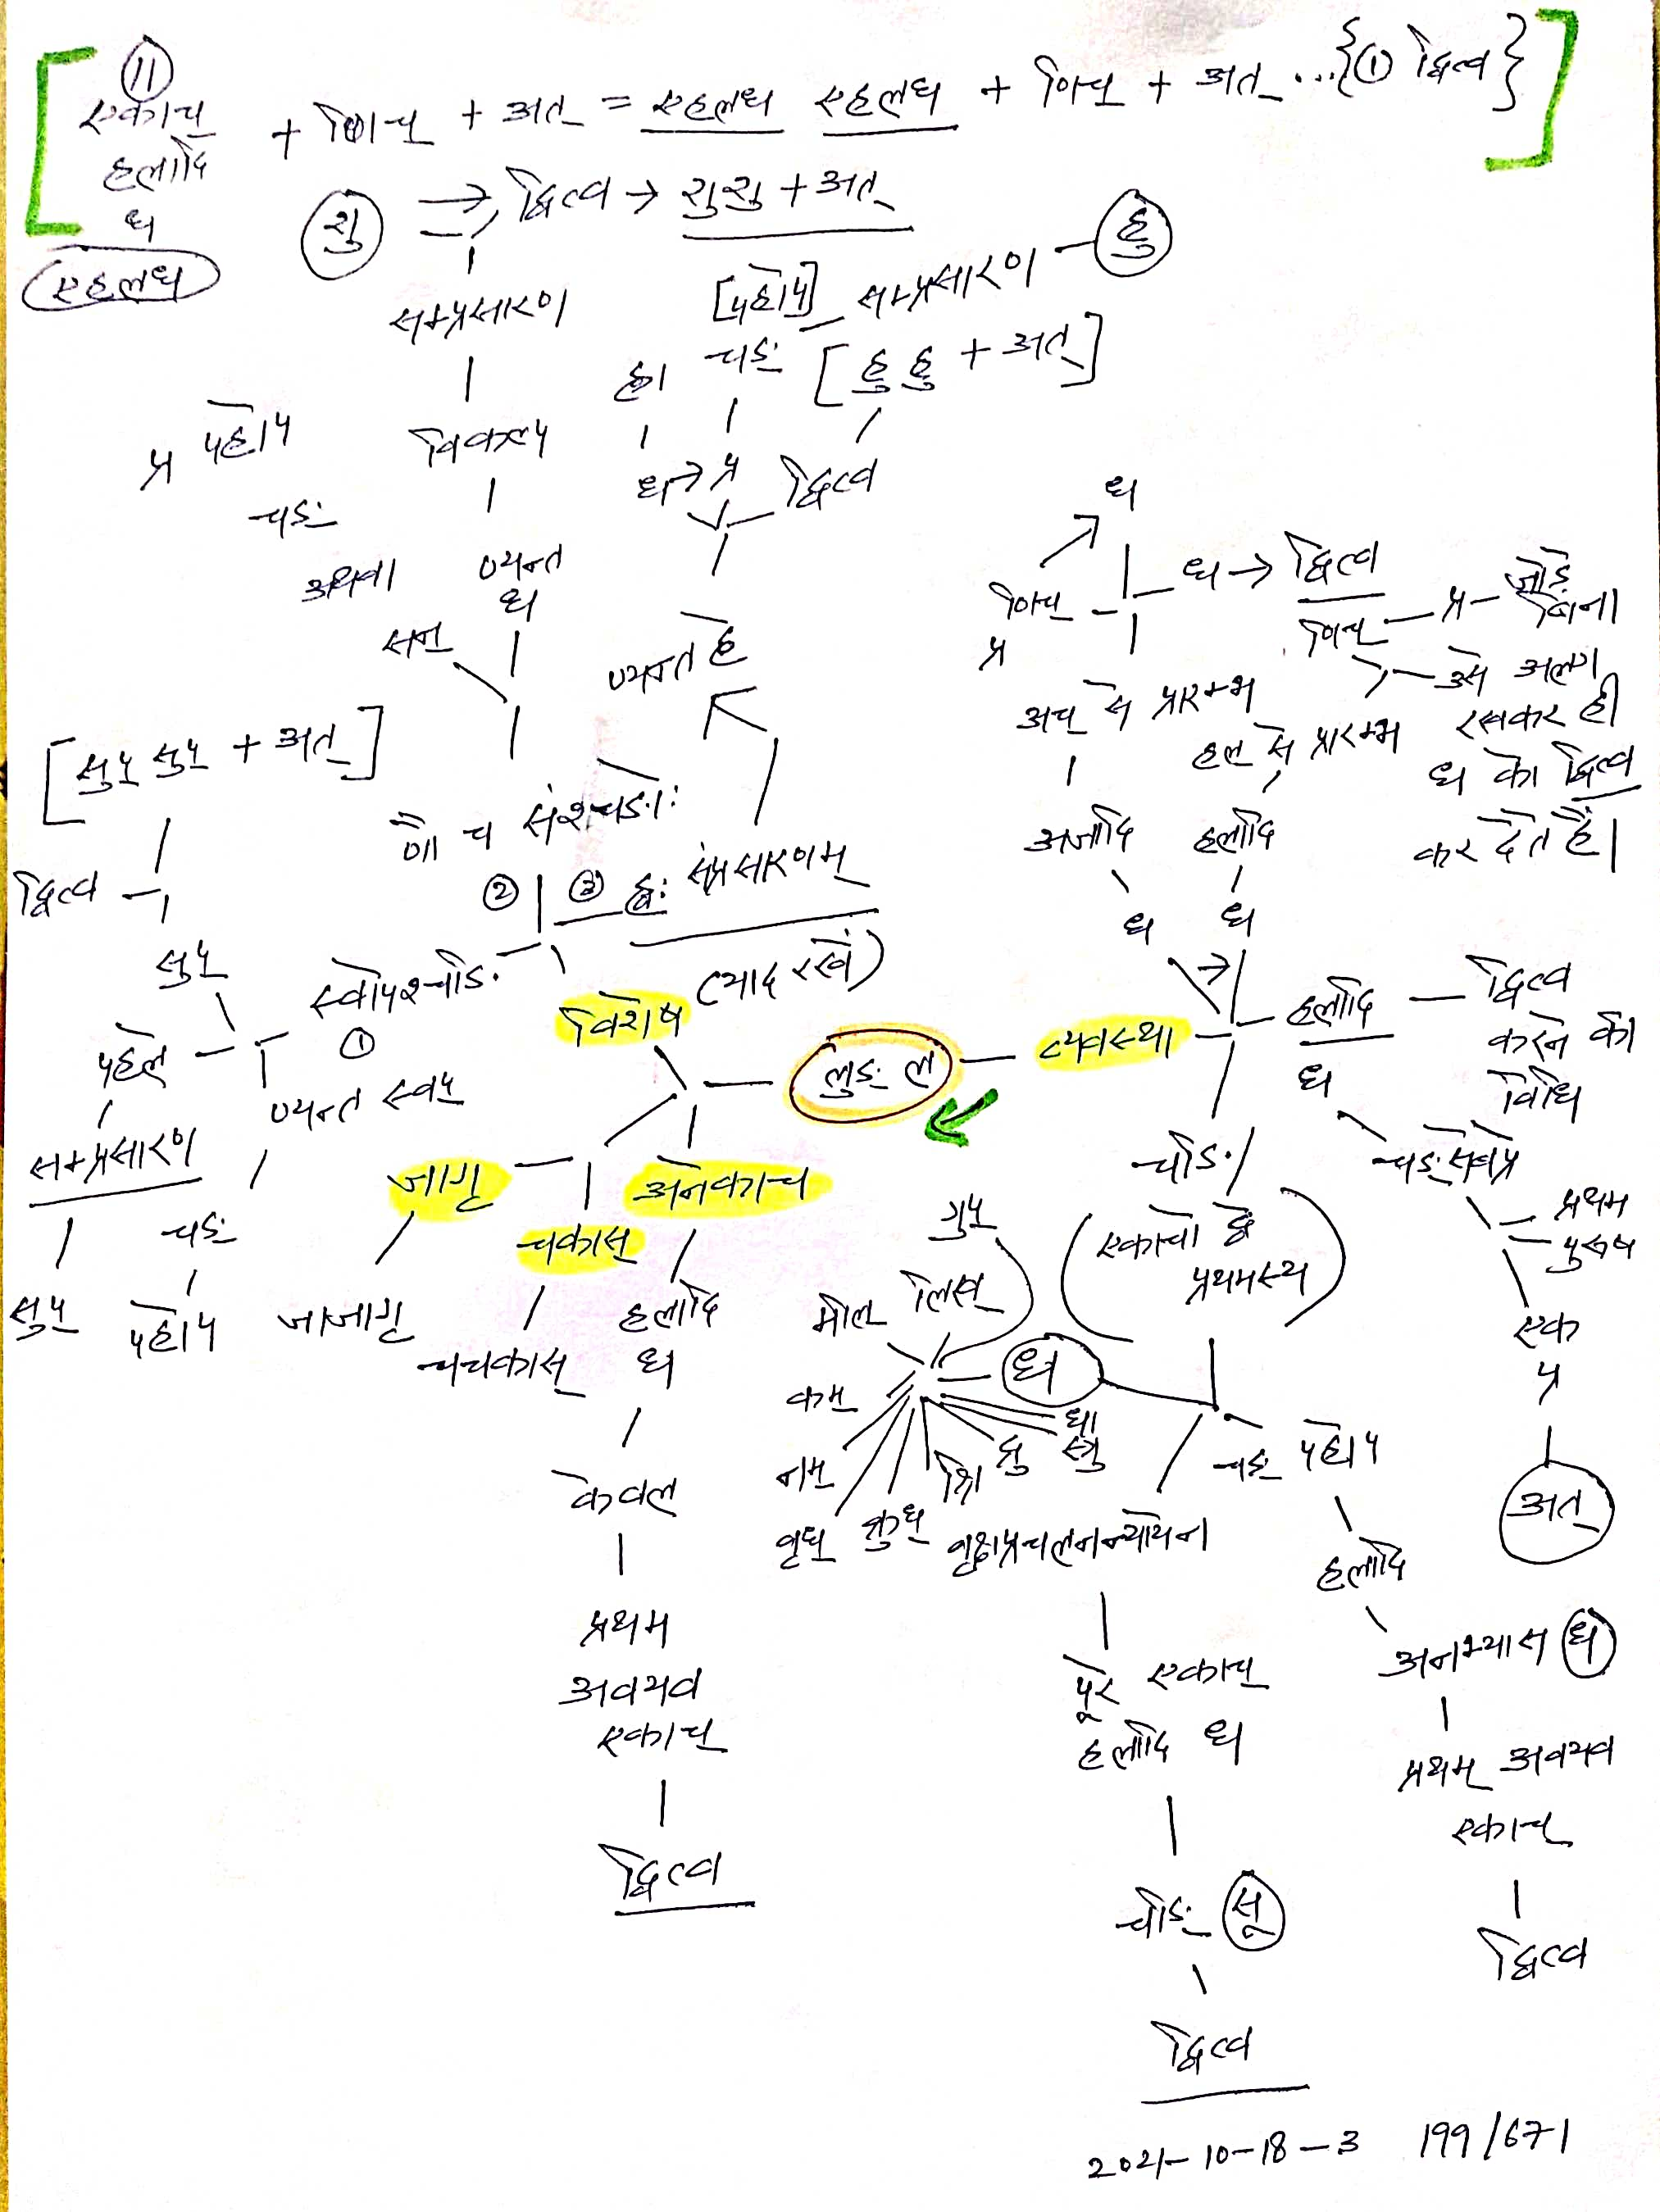 (11)
एकाच्
हलादि
ध
एहलध
+ णिच् + अत् = एहलध एहलध + णिच् + अत् ...{① द्वित्व}
शु ⇒ द्वित्व → शुशु + अत्
सम्प्रसारण
विकल्प
ण्यन्त
ध
सन्
प्र परे हो
चङ्
अथवा
णौ च संश्चङोः
② ③ ह्वः संप्रसारणम्
(याद रखें)
सम्प्रसारण - हु
चङ्
[हु हु + अत्]
द्वित्व
ह्वा
ध → प्र
ण्यन्त ह्वे
[सुप् सुप् + अत्]
द्वित्व
सुप्
पहले
सम्प्रसारण
सुप्
स्वापेश्चङि
①
ण्यन्त स्वप्
चङ्
विशेष
लुङ् ल
व्यवस्था
जागृ
जाजागृ
चकास्
चचकास्
अनेकाच्
हलादि
ध
केवल
प्रथम
अवयव
एकाच्
द्वित्व
ध
णिच्
प्र
ध → द्वित्व
णिच् - प्र - जोड़े
बिना
उसे अलग
रखकर ही
ध को द्वित्व
कर देते हैं।
अच् से प्रारम्भ
हल् से प्रारम्भ
अजादि
हलादि
ध
ध
हलादि
ध
द्वित्व
करने की
विधि
प्रथम
पुरुष
एक
प्र
अत्
चङि
(एकाचो द्वे
प्रथमस्य)
ध
गुप्
लिख्
मील्
कम्
नम्
वृध्
क्रुध्
श्रि
द्रु
स्रु
धा
वृक्षप्रचलनन्यायेन
पूरे एकाच्
हलादि ध
चङि सू
द्वित्व
हलादि
अनभ्यास ध
प्रथम अवयव
एकाच्
द्वित्व
2021-10-18-3 199/671